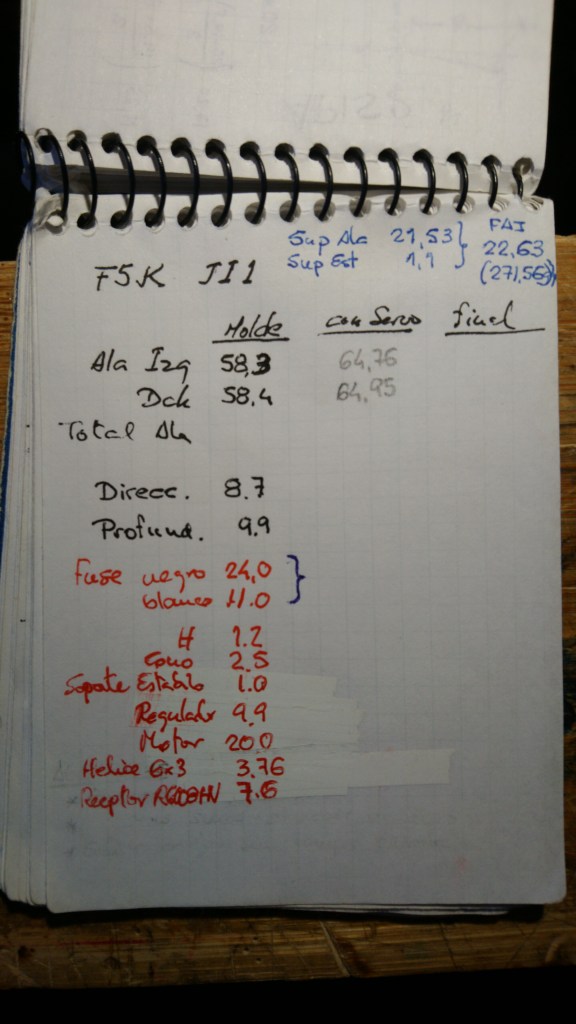 Sup Ala 21,53 } FAI
Sup Est 1,1 22,63
(271,56)
F5K JI1
Molde con Servo final
Ala Izq 58,3 64,76
Dch 58,4 64,95
Total Ala
Direcc. 8.7
Profund. 9.9
Fuse negro 24,0 }
blanco 11.0
H 1.2
Cono 2.5
Soporte Estabilo 1.0
Regulador 9,9
Motor 20.0
Helice 6x3 3.76
Receptor 7.6